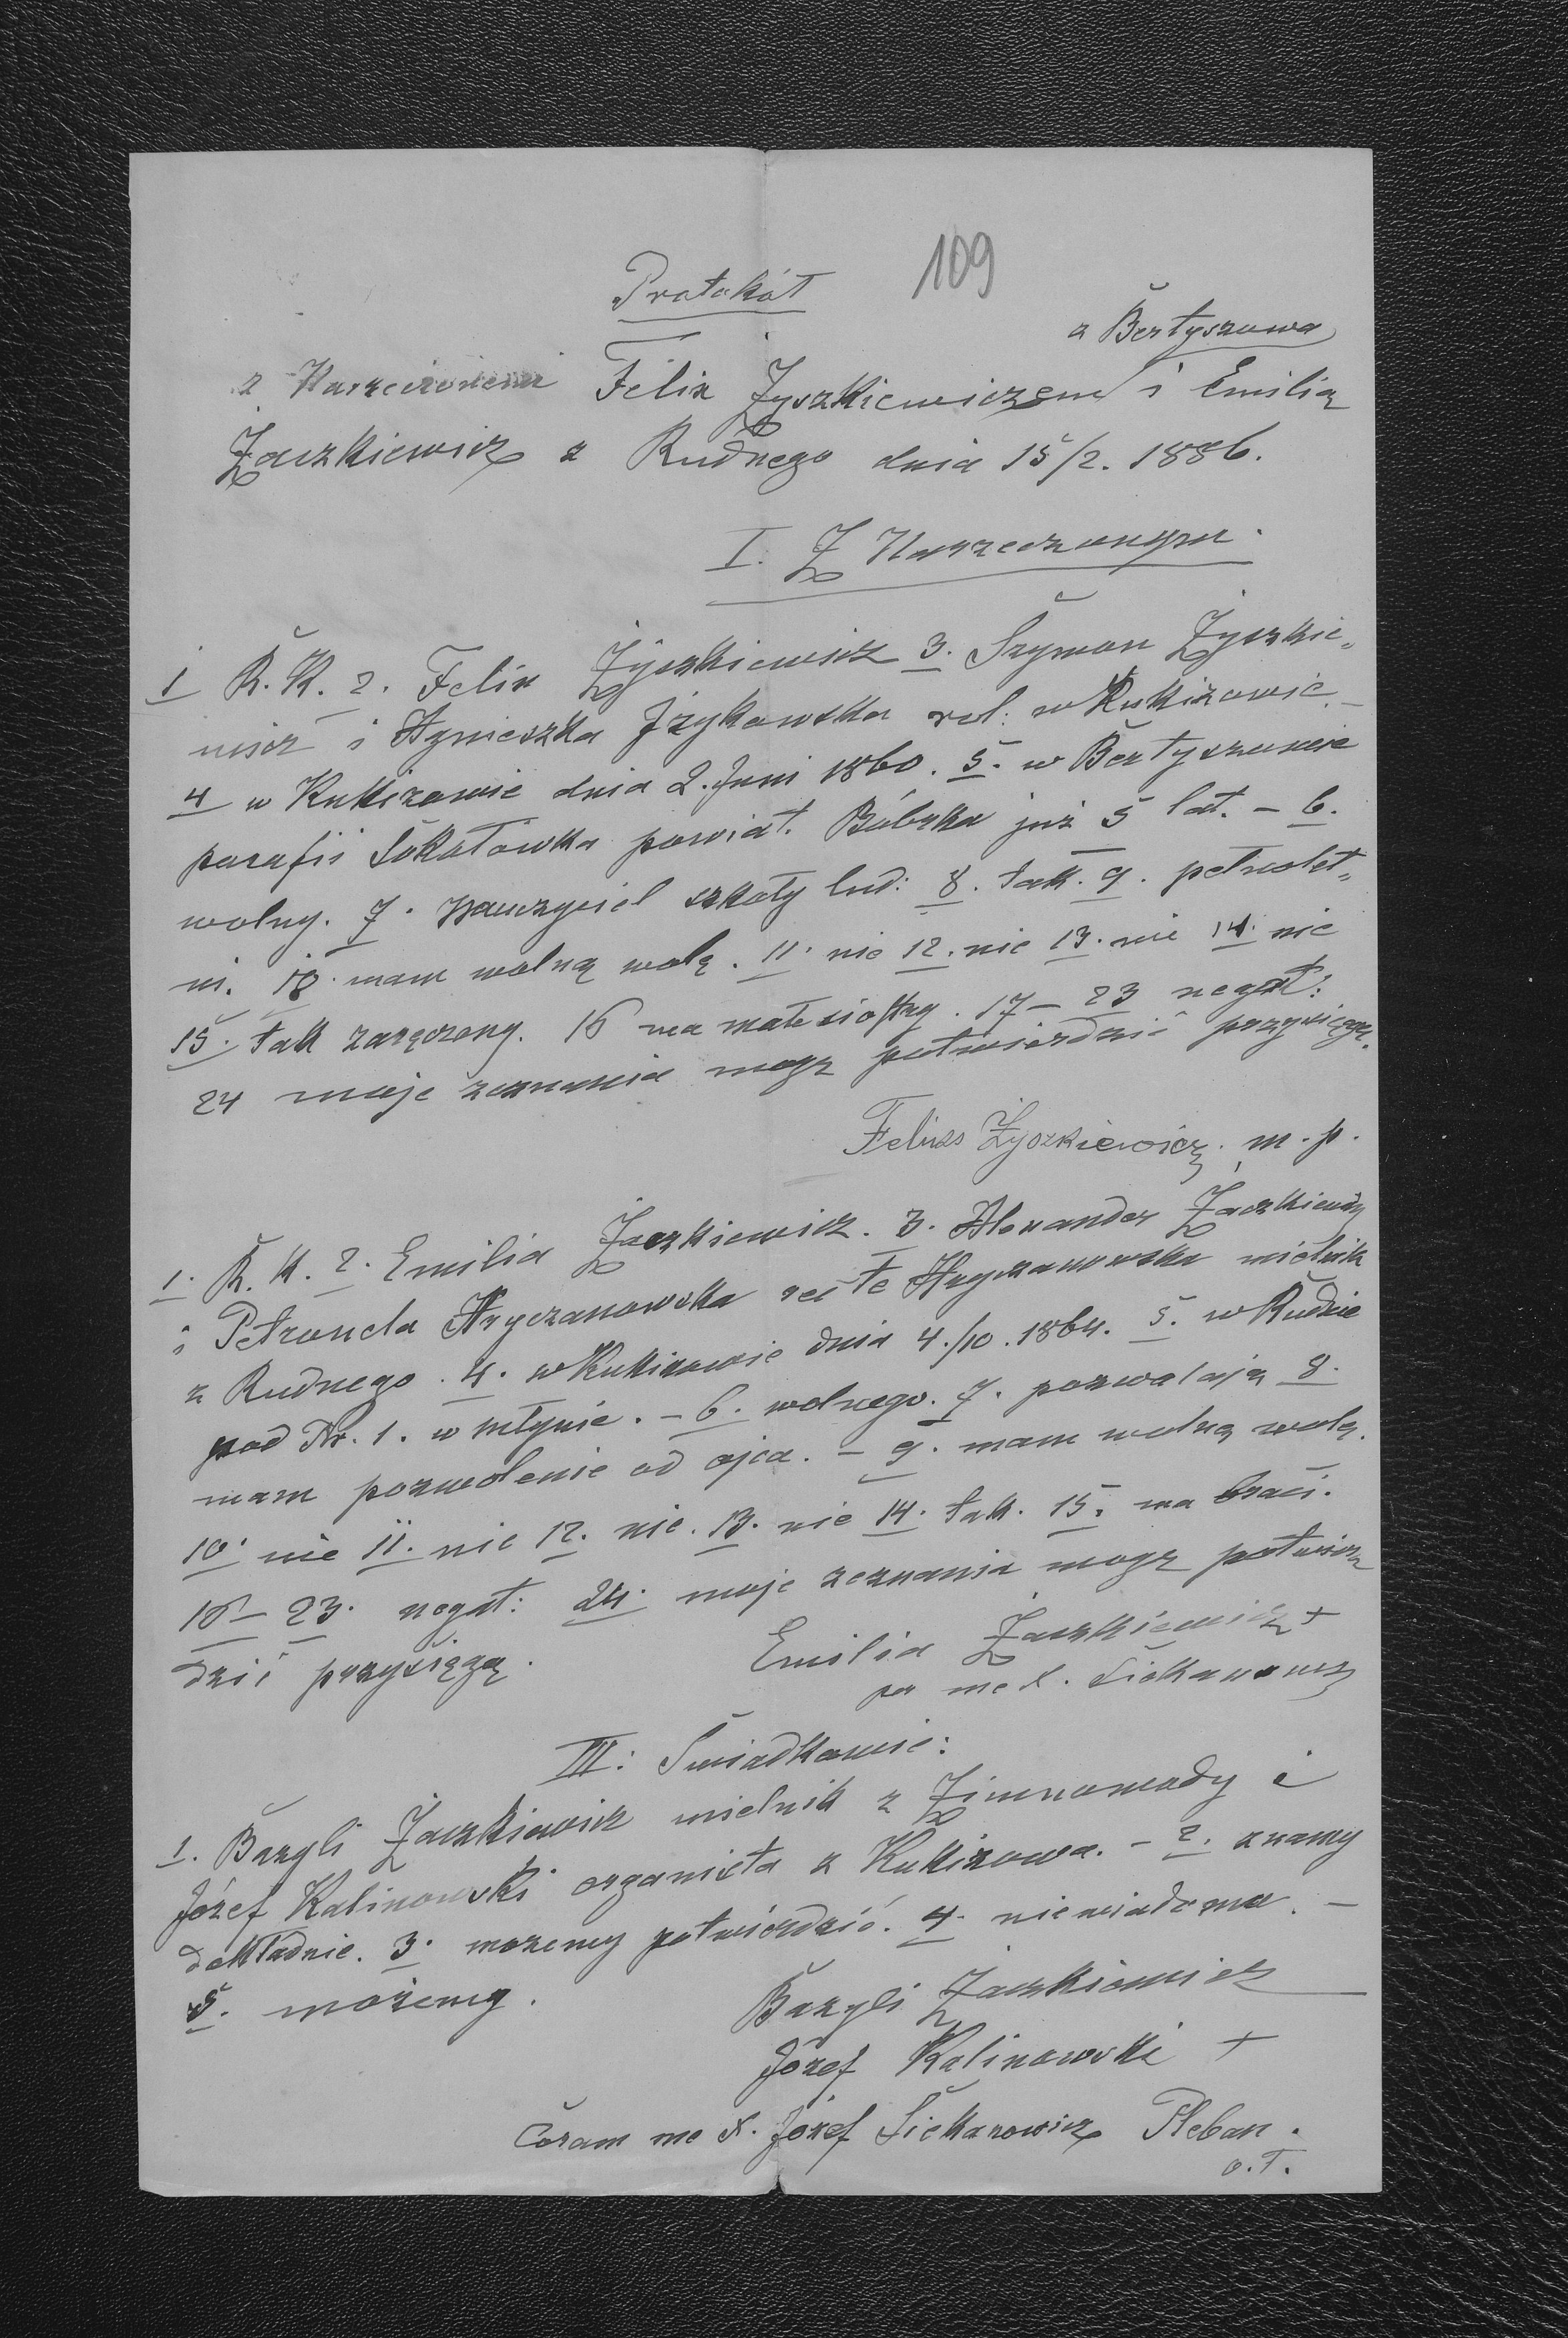 109
Protokół
z Bertyszowa
z Narzeczonemi Felix Żyszkiewiczem i Emilią
Żaczkiewicz z Rudnego dnia 15/2. 1886.
I. Z Narzeczonym.
1 R. K. 2. Felix Żyszkiewicz 3. Szymon Żyszkie„
wicz i Agnieszka Izykowska rol: w Kukizowie. –
4 w Kukizowie dnia 2. Juni 1860. 5. w Bertyszowie
parafii Sokołówka powiat. Bóbrka już 5 lat. – 6.
wolny. 7. Nauczyciel szkoły lud: 8. tak. 9. pełnolet„
ni. 10. mam wolną wolę. 11. nie 12. nie 13. nie 14. nie
15. tak zaręczony. 16 ma małe siostry. 17 – 23 negat:
24 moje zeznania mogę potwierdzić przysięgą.
Feliks Żyszkiewicz m. p.
1. R. K. 2. Emilia Żaczkiewicz. 3. Alexander Żaczkiewicz
i Petronela Hryczanowska recte Hryczanowska mielnik
z Rudnego. 4. w Kukizowie dnia 4./10. 1864. 5. w Rudnie
pod Nr. 1. w młynie. – 6. wolnego. 7. pozwalają 8.
mam pozwolenie od ojca. – 9. mam wolną wolę.
10. nie 11. nie 12. nie. 13. nie 14. tak. 15. ma braci.
16 – 23. negat: 24. moje zeznania mogę potwier„
dzić przysięgą.
Emilia Żaczkiewicz +
per me X. Siekanowicz
III: Świadkowie:
1. Bazyli Żaczkiewicz mielnik z Zimnowody i
Józef Kalinowski organista z Kukizowa. – 2. znamy
dokładnie. 3. możemy potwierdzić. 4. niewiadoma. –
5. możemy.
Bazyli Żaczkiewicz
Józef Kalinowski +
Coram me X. Józef Siekanowicz Pleban.
o. ł.